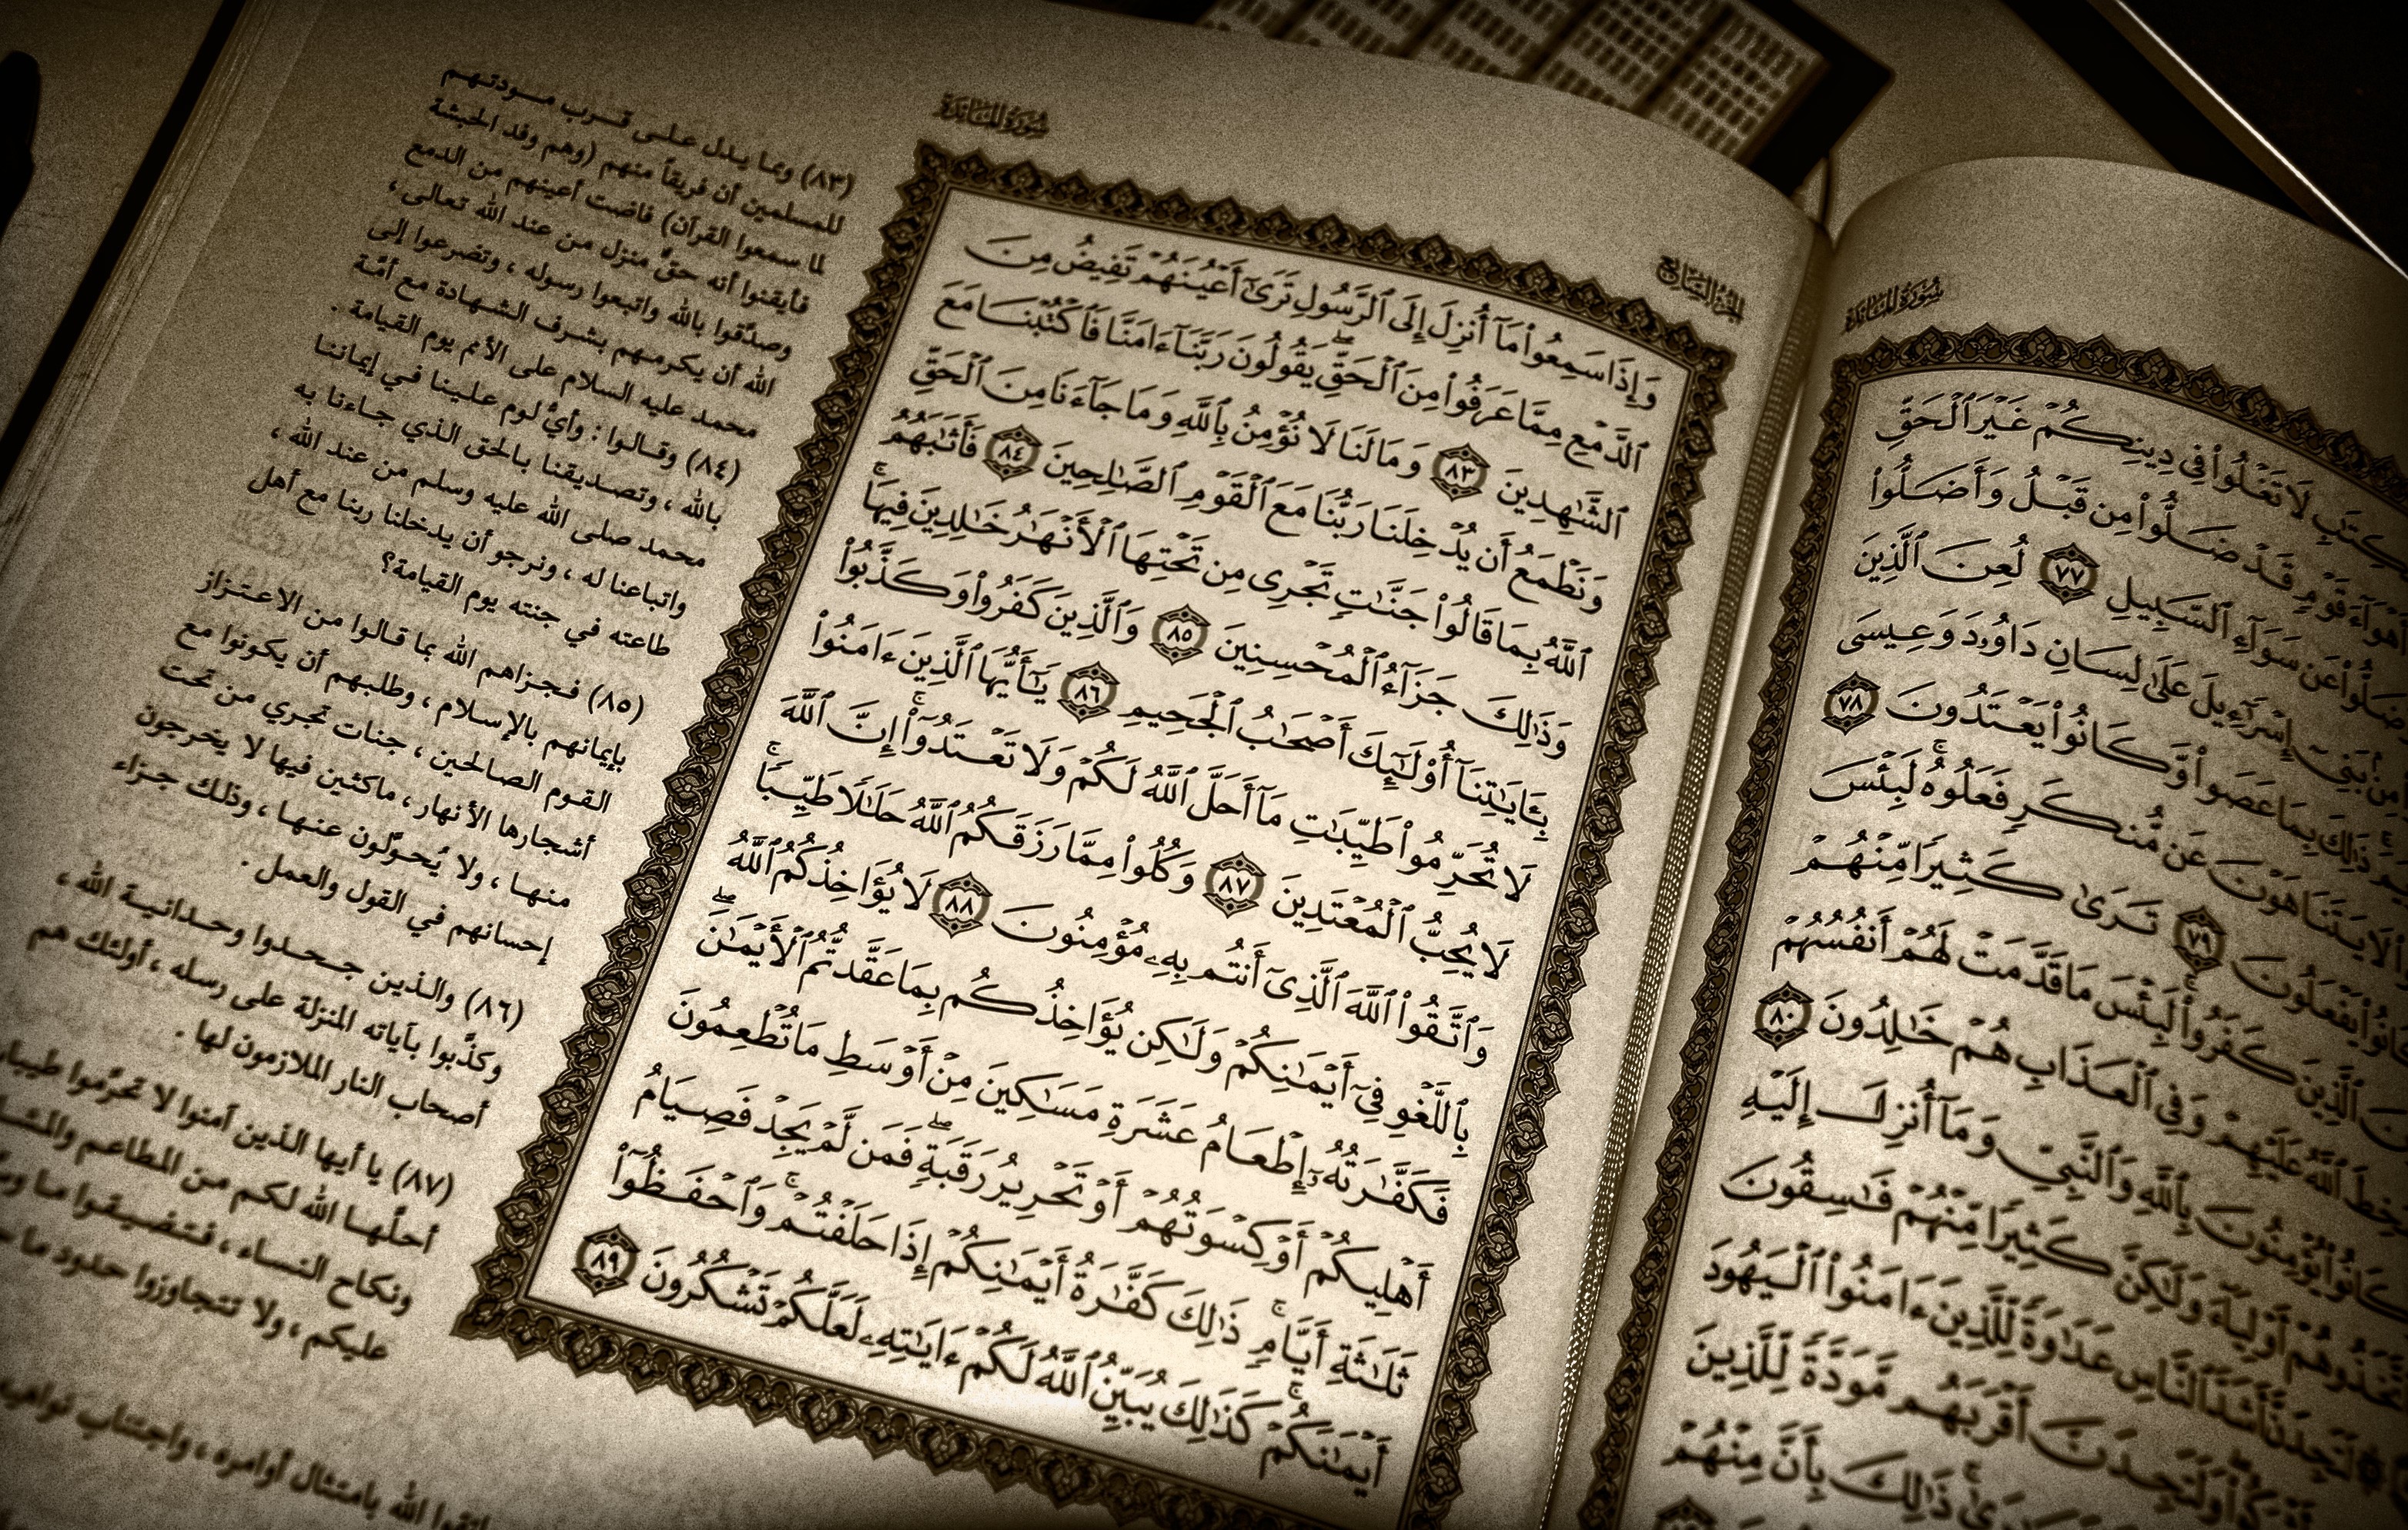 سُورَةُ المَائِدَةِ
لَا تَغْلُوا۟ فِى دِينِكُمْ غَيْرَ ٱلْحَقِّ
أَهْوَآءَ قَوْمٍ قَدْ ضَلُّوا۟ مِن قَبْلُ وَأَضَلُّوا۟
عَن سَوَآءِ ٱلسَّبِيلِ ٧٧ لُعِنَ ٱلَّذِينَ
مِنۢ بَنِىٓ إِسْرَٰٓءِيلَ عَلَىٰ لِسَانِ دَاوُۥدَ وَعِيسَى
ذَٰلِكَ بِمَا عَصَوا۟ وَّكَانُوا۟ يَعْتَدُونَ ٧٨
لَا يَتَنَاهَوْنَ عَن مُّنكَرٍ فَعَلُوهُ ۚ لَبِئْسَ
يَفْعَلُونَ ٧٩ تَرَىٰ كَثِيرًا مِّنْهُمْ
ٱلَّذِينَ كَفَرُوا۟ ۚ لَبِئْسَ مَا قَدَّمَتْ لَهُمْ أَنفُسُهُمْ
ٱللَّهُ عَلَيْهِمْ وَفِى ٱلْعَذَابِ هُمْ خَٰلِدُونَ ٨٠
كَانُوا۟ يُؤْمِنُونَ بِٱللَّهِ وَٱلنَّبِىِّ وَمَآ أُنزِلَ إِلَيْهِ
أَوْلِيَآءَ وَلَٰكِنَّ كَثِيرًا مِّنْهُمْ فَٰسِقُونَ
أَشَدَّ ٱلنَّاسِ عَدَٰوَةً لِّلَّذِينَ ءَامَنُوا۟ ٱلْيَهُودَ
وَلَتَجِدَنَّ أَقْرَبَهُم مَّوَدَّةً لِّلَّذِينَ
ذَٰلِكَ بِأَنَّ مِنْهُمْ
الجُزْءُ السَّابِعُ
سُورَةُ المَائِدَةِ
وَإِذَا سَمِعُوا۟ مَآ أُنزِلَ إِلَى ٱلرَّسُولِ تَرَىٰٓ أَعْيُنَهُمْ تَفِيضُ مِنَ
ٱلدَّمْعِ مِمَّا عَرَفُوا۟ مِنَ ٱلْحَقِّ ۖ يَقُولُونَ رَبَّنَآ ءَامَنَّا فَٱكْتُبْنَا مَعَ
ٱلشَّٰهِدِينَ ٨٣ وَمَا لَنَا لَا نُؤْمِنُ بِٱللَّهِ وَمَا جَآءَنَا مِنَ ٱلْحَقِّ
وَنَطْمَعُ أَن يُدْخِلَنَا رَبُّنَا مَعَ ٱلْقَوْمِ ٱلصَّٰلِحِينَ ٨٤ فَأَثَٰبَهُمُ
ٱللَّهُ بِمَا قَالُوا۟ جَنَّٰتٍ تَجْرِى مِن تَحْتِهَا ٱلْأَنْهَٰرُ خَٰلِدِينَ فِيهَا ۚ
وَذَٰلِكَ جَزَآءُ ٱلْمُحْسِنِينَ ٨٥ وَٱلَّذِينَ كَفَرُوا۟ وَكَذَّبُوا۟
بِـَٔايَٰتِنَآ أُو۟لَٰٓئِكَ أَصْحَٰبُ ٱلْجَحِيمِ ٨٦ يَٰٓأَيُّهَا ٱلَّذِينَ ءَامَنُوا۟
لَا تُحَرِّمُوا۟ طَيِّبَٰتِ مَآ أَحَلَّ ٱللَّهُ لَكُمْ وَلَا تَعْتَدُوٓا۟ ۚ إِنَّ ٱللَّهَ
لَا يُحِبُّ ٱلْمُعْتَدِينَ ٨٧ وَكُلُوا۟ مِمَّا رَزَقَكُمُ ٱللَّهُ حَلَٰلًا طَيِّبًا ۚ
وَٱتَّقُوا۟ ٱللَّهَ ٱلَّذِىٓ أَنتُم بِهِۦ مُؤْمِنُونَ ٨٨ لَا يُؤَاخِذُكُمُ ٱللَّهُ
بِٱللَّغْوِ فِىٓ أَيْمَٰنِكُمْ وَلَٰكِن يُؤَاخِذُكُم بِمَا عَقَّدتُّمُ ٱلْأَيْمَٰنَ ۖ
فَكَفَّٰرَتُهُۥٓ إِطْعَامُ عَشَرَةِ مَسَٰكِينَ مِنْ أَوْسَطِ مَا تُطْعِمُونَ
أَهْلِيكُمْ أَوْ كِسْوَتُهُمْ أَوْ تَحْرِيرُ رَقَبَةٍ ۖ فَمَن لَّمْ يَجِدْ فَصِيَامُ
ثَلَٰثَةِ أَيَّامٍ ۚ ذَٰلِكَ كَفَّٰرَةُ أَيْمَٰنِكُمْ إِذَا حَلَفْتُمْ ۚ وَٱحْفَظُوٓا۟
أَيْمَٰنَكُمْ ۚ كَذَٰلِكَ يُبَيِّنُ ٱللَّهُ لَكُمْ ءَايَٰتِهِۦ لَعَلَّكُمْ تَشْكُرُونَ ٨٩
(٨٣) ومما يدل على قرب مودتهم
للمسلمين أن فريقاً منهم (وهم وفد الحبشة
لما سمعوا القرآن) فاضت أعينهم من الدمع
فأيقنوا أنه حقٌّ منزل من عند الله تعالى ،
وصدَّقوا بالله واتبعوا رسوله ، وتضرعوا إلى
الله أن يكرمهم بشرف الشهادة مع أمَّة
محمد عليه السلام على الأمم يوم القيامة .
(٨٤) وقالوا : وأيُّ لوم علينا في إيماننا
بالله ، وتصديقنا بالحق الذي جاءنا به
محمد صلى الله عليه وسلم من عند الله ،
واتباعنا له ، ونرجو أن يدخلنا ربنا مع أهل
طاعته في جنته يوم القيامة؟
(٨٥) فجزاهم الله بما قالوا من الاعتزاز
بإيمانهم بالإسلام ، وطلبهم أن يكونوا مع
القوم الصالحين ، جنات تجري من تحت
أشجارها الأنهار ، ماكثين فيها لا يخرجون
منها ، ولا يُحوَّلون عنها ، وذلك جزاء
إحسانهم في القول والعمل .
(٨٦) والذين جحدوا وحدانية الله ،
وكذَّبوا بآياته المنزلة على رسله ، أولئك هم
أصحاب النار الملازمون لها .
(٨٧) يا أيها الذين آمنوا لا تحرِّموا
أحلَّها الله لكم من المطاعم
ونكاح النساء ، فتضيقوا ما
عليكم ، ولا تتجاوزوا حدود ما
الله بامتثال أوامره ، واجتناب